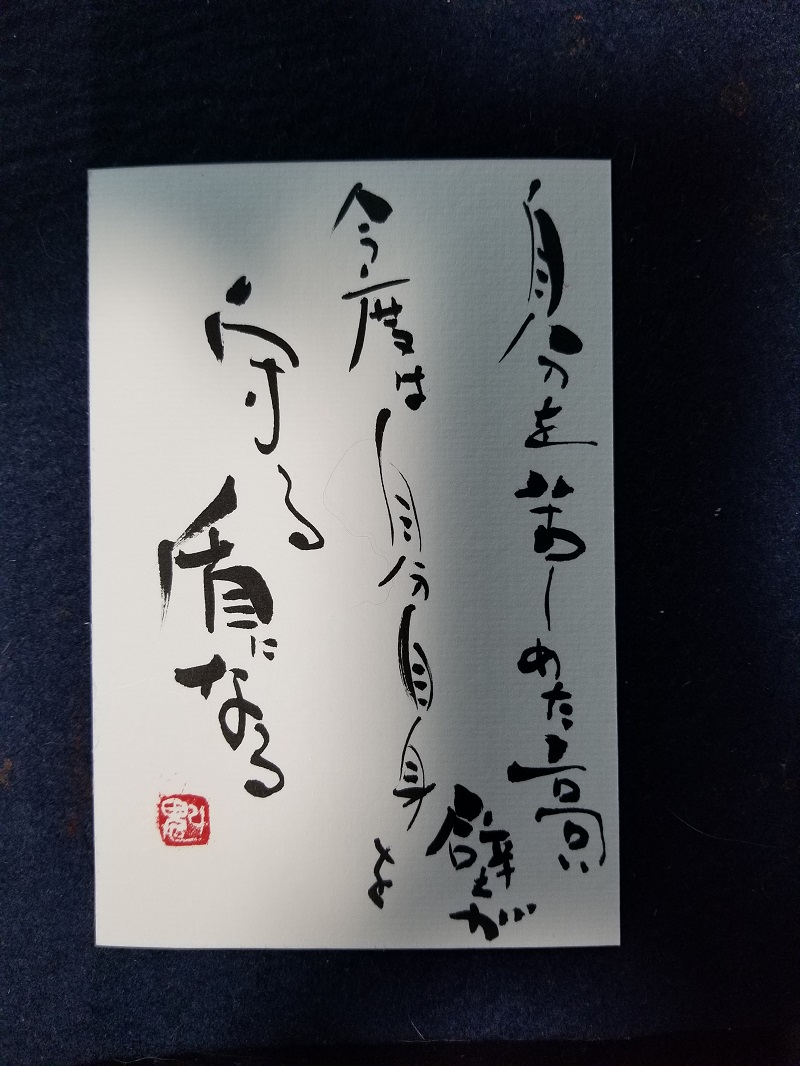 自分を苦しめた高い
壁が
今度は自分自身を
守る
盾になる